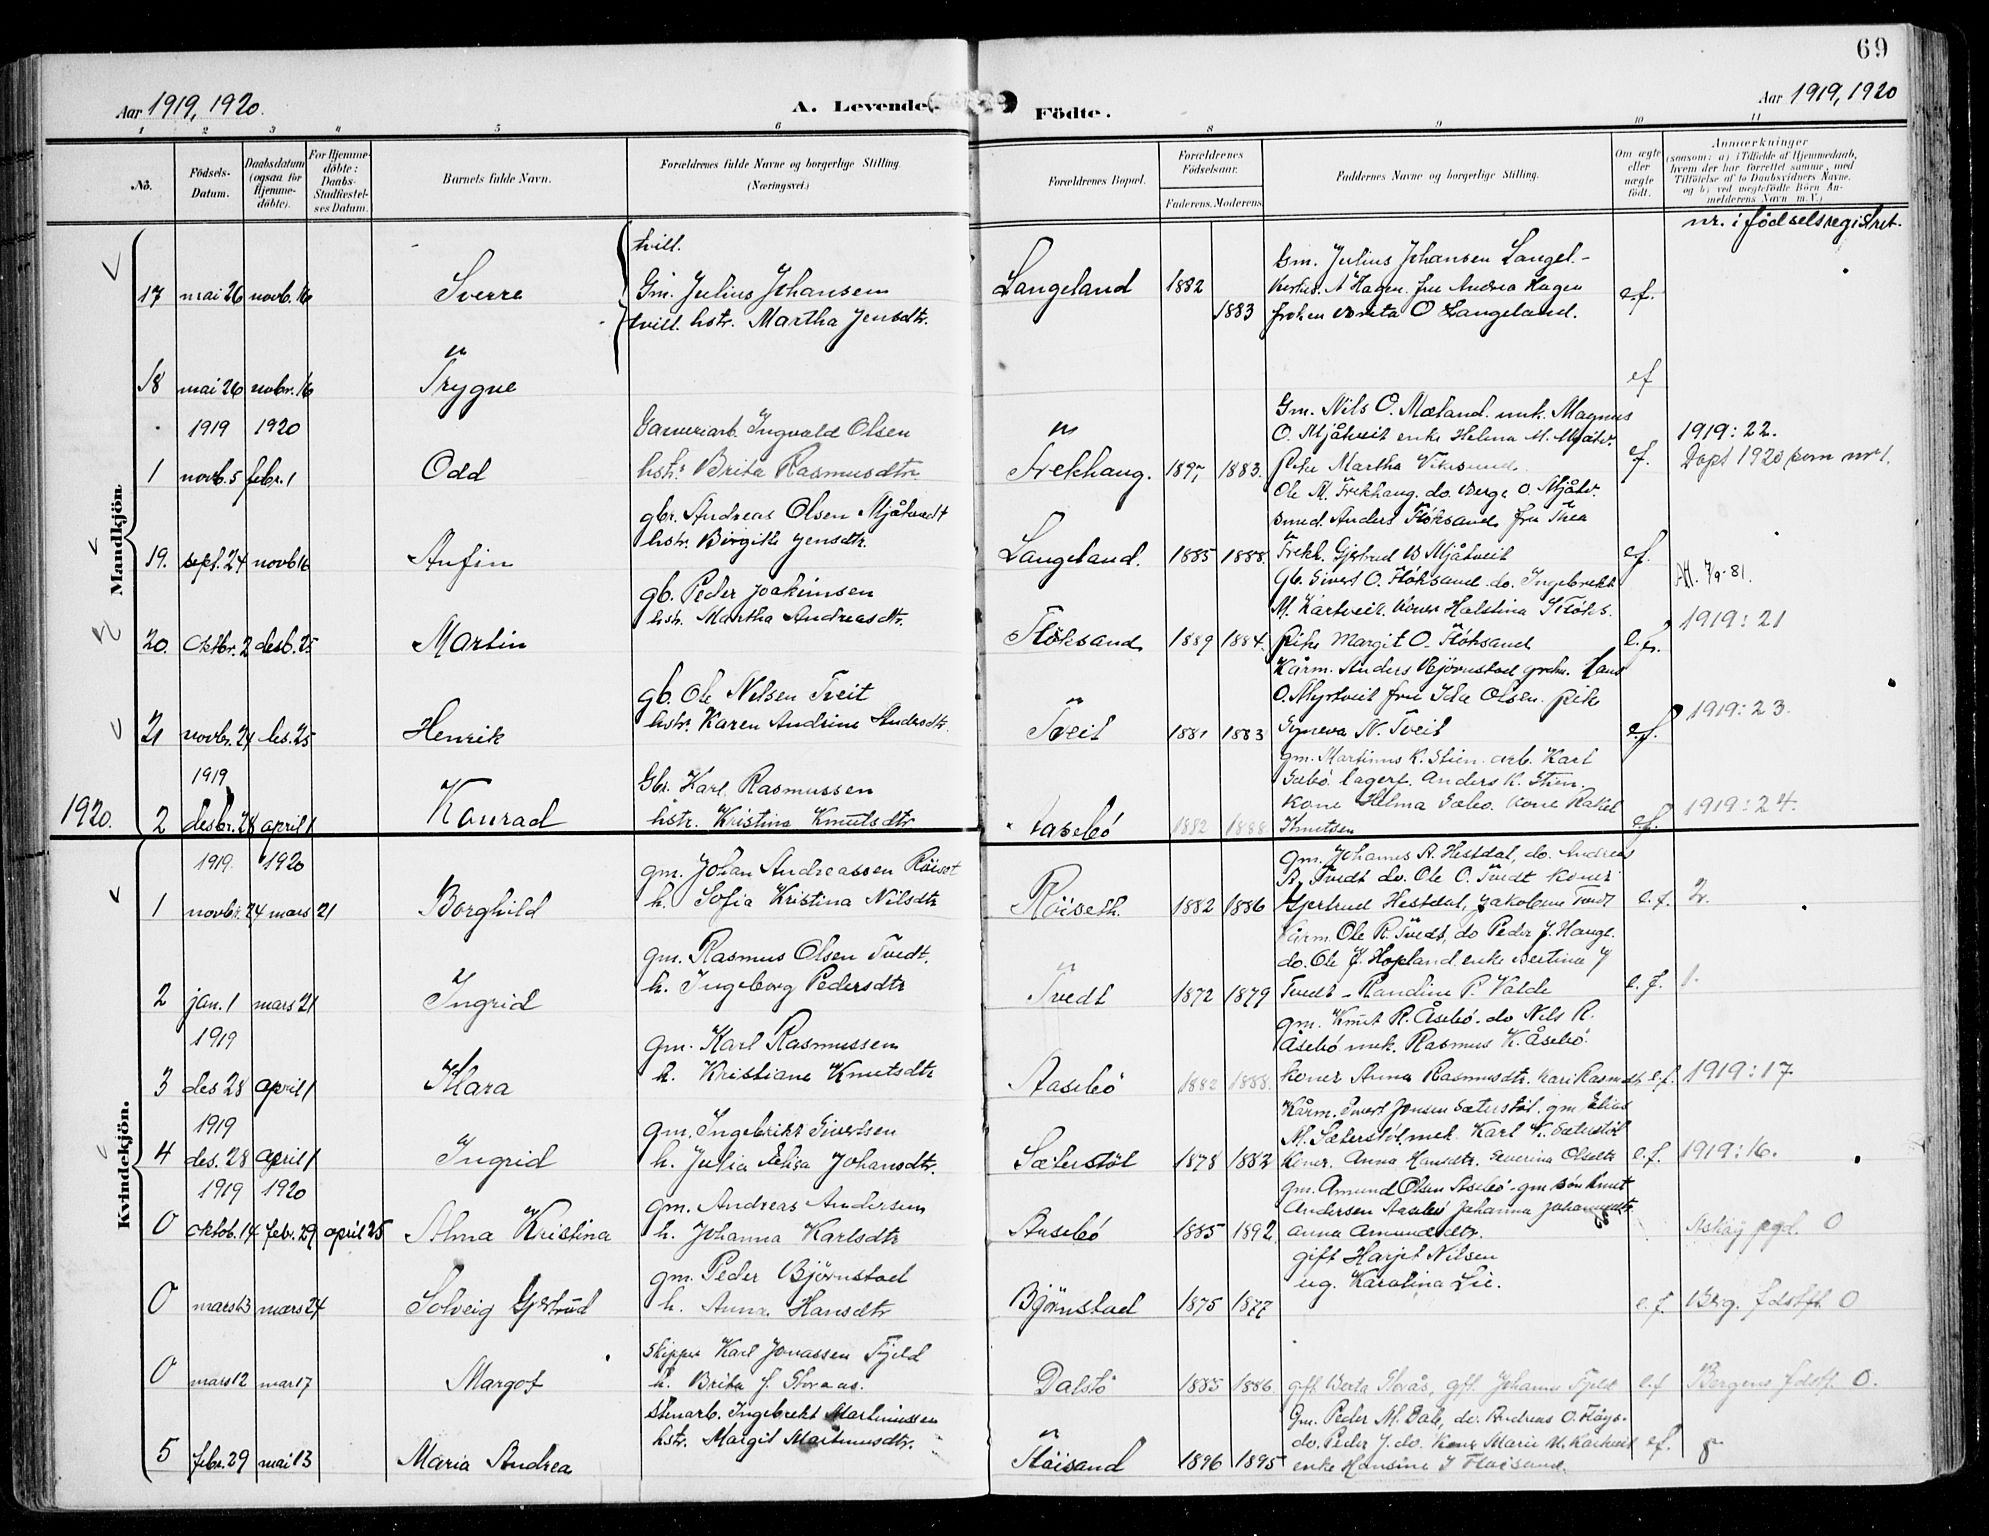 69
Aar 1919, 1920.
A. Levende
Födte.
Aar 1919, 1920
1 2 3 4 5 6 8 9 10 11
No.
Födsels-Datum.
Daabsdatum (ogsaa for Hjemme-döbte).
For Hjemme-döbte: Daabs-Stadfæstel-ses Datum.
Barnets fulde Navn.
Forældrenes fulde Navne og borgerlige Stilling.
(Næringsvei.)
Forældrenes Bopæl.
Forældrenes Födselsaar.
Faderens. Moderens.
Faddernes Navne og borgerlige Stilling.
Om ægte eller uægte födt.
Anmærkninger
(saasom: a) i Tilfælde af Hjemmedaab, hvem der har forrettet samme, med Tilföielse af to Daabsvidners Navne. og b) ved uægtefödte Börn An-melderens Navn m. V.)
nr. i födselsregistret.
Mandkjön.
tvill.
17 mai 26 novb. 16 Sverre Gm. Julius Johansen Langeland 1882
tvill. hstr. Martha Jensdtr. 1883
Gm. Julius Johansen Langel-
A Hagen. fru Andrea Hagen
O Langeland.
e.f.
18 mai 26 novbr. 16 Trygve
ef
1919 1920
1 novb. 5 febr. 1 Odd
Ingvald Olsen
hstr. Brita Rasmusdtr
Frekhaug. 1897 1883.
Gm. Nils O. Mæland. unk. Magnus
O. Mjåtveit enke Helma M. Mjåtv.
pike Martha
e.f.
1919:22.
Døpt 1920 som nr 1.
19. sept. 24 novb 16 Anfin
gbr. Andreas Olsen Mjåtvedt
hstr. Birgitte Jensdtr.
Langeland. 1885 1888.
Ole M. Frekhaug. do. Berge O. Mjåtv.
smed. Anders Fløksand fru Thea
Frekh. Gjertrud B Mjåtveit
e.f.
Att. 7/9-81.
20. oktbr. 2 desb. 25 Martin
gb. Peder Joakimsen
hstr. Martha Andreasdtr.
Fløksand 1889 1884.
Gb. Sivert O. Fløksand. do. Ingebrikt
M. Kartveit. koner Halstina S Fløks.
pike Margit O. Fløksand
e.f.
1919:21
21 novbr. 24 des. 25 Henrik
gb. Ole Nilsen Tveit
hstr. Karen Andrine Andersdtr.
Tveit 1881 1883
Kårm. Anders Bjørnstad
O. Myrtveit fru Ida Olsen. pike
Synneva N. Tveit
e.f.
1919:23.
1919
1920. 2 desbr. 28 april 1 Konrad
Gbr. Karl Rasmussen
hstr. Kristina Knutsdtr
Aasebö 1882 1888
gm. Martinus K. Stien. arb. Karl
Sæbö lagerf. Anders K. Stien.
kone Helma Sæbö. kone Rakel
Knutsen
e.f.
1919:24.
Kvindekjön.
1919. 1920
1 novbr. 24 mars 21 Borghild
gm. Johan Andreassen Röiset
h. Sofia Kristina Nilsdtr
Röiseth. 1882 1886
gm. Johannes A. Hestdal, do. Andreas
A. Tvedt do. Ole O. Tvedt koner
Gjertrud Hestdal, Jakobine Tvedt
e.f.
2.
2 jan. 1 mars 21 Ingrid
gm. Rasmus Olsen Tvedt.
h. Ingeborg Pedersdtr
Tvedt 1872 1879
Kårm. Ole R. Tvedt, do Peder J. Hauge.
do. Ole J. Hopland enke Bertine J
Tvedt - Randine P. Valde
e.f.
1.
1919
3 des 28 april 1 Klara
gm. Karl Rasmussen
h. Kristiane Knutsdtr
Aasebö 1882 1888.
gm. Knut R. Åsebö. do Nils R.
Åsebö mek. Rasmus K. Åsebö.
koner Anna Rasmusdtr. Kari Rasmdt
e.f.
1919:17.
1919
4 des. 28 april 1 Ingrid
gm. Ingebrikt Sivertsen
h. Julia Elisa Johansdtr.
Sæterstöl 1878 1882
Kårm. Sivert Jonsen Sæterstöl. gm Elias
M. Sæterstöl, mek. Karl K. Sæterstöl
koner. Anna Hansdtr. Severina Olsdtr
e.f.
1919:16.
1919 1920
0 oktob. 14 febr. 29 april 25 Alma Kristina
gm. Andreas Andersen
h. Johanna Karlsdtr
Aasebö 1885 1892
gm. Amund Olsen Aasebö - gm sön Knut
Andersen Aasebö Johanna Johannesdtr
Anna Amundsdtr.
Askøy pgd. 0
0 mars 13 mars 24 Solveig Gjertrud
gm. Peder Björnstad
h. Anna Hansdtr
Björnstad 1875 1877
gift Harjet Nilsen
ug. Karolina Lie.
e.f.
Berg. fdstft. 0
0 mars 12 mar 17 Margot
Skipper Karl Jonassen Fjeld
h. Brita J. Storaas.
Dalstö 1885 1886.
gift Berta Storås, gft. Johanne Fjeld
e.f
Bergens fdstft. 0.
5 febr. 29 mai 13 Maria Andrea
Stenarb. Ingebrekt Martinussen
hstr. Margit Martinusdtr.
Flöisand 1896 1895
Gm. Peder M. Dale, do. Andreas O. Flöys.
do. Peder J. do. kone Marie M. Kartveit
enke Hansine J Flöisand.
e.f.
8